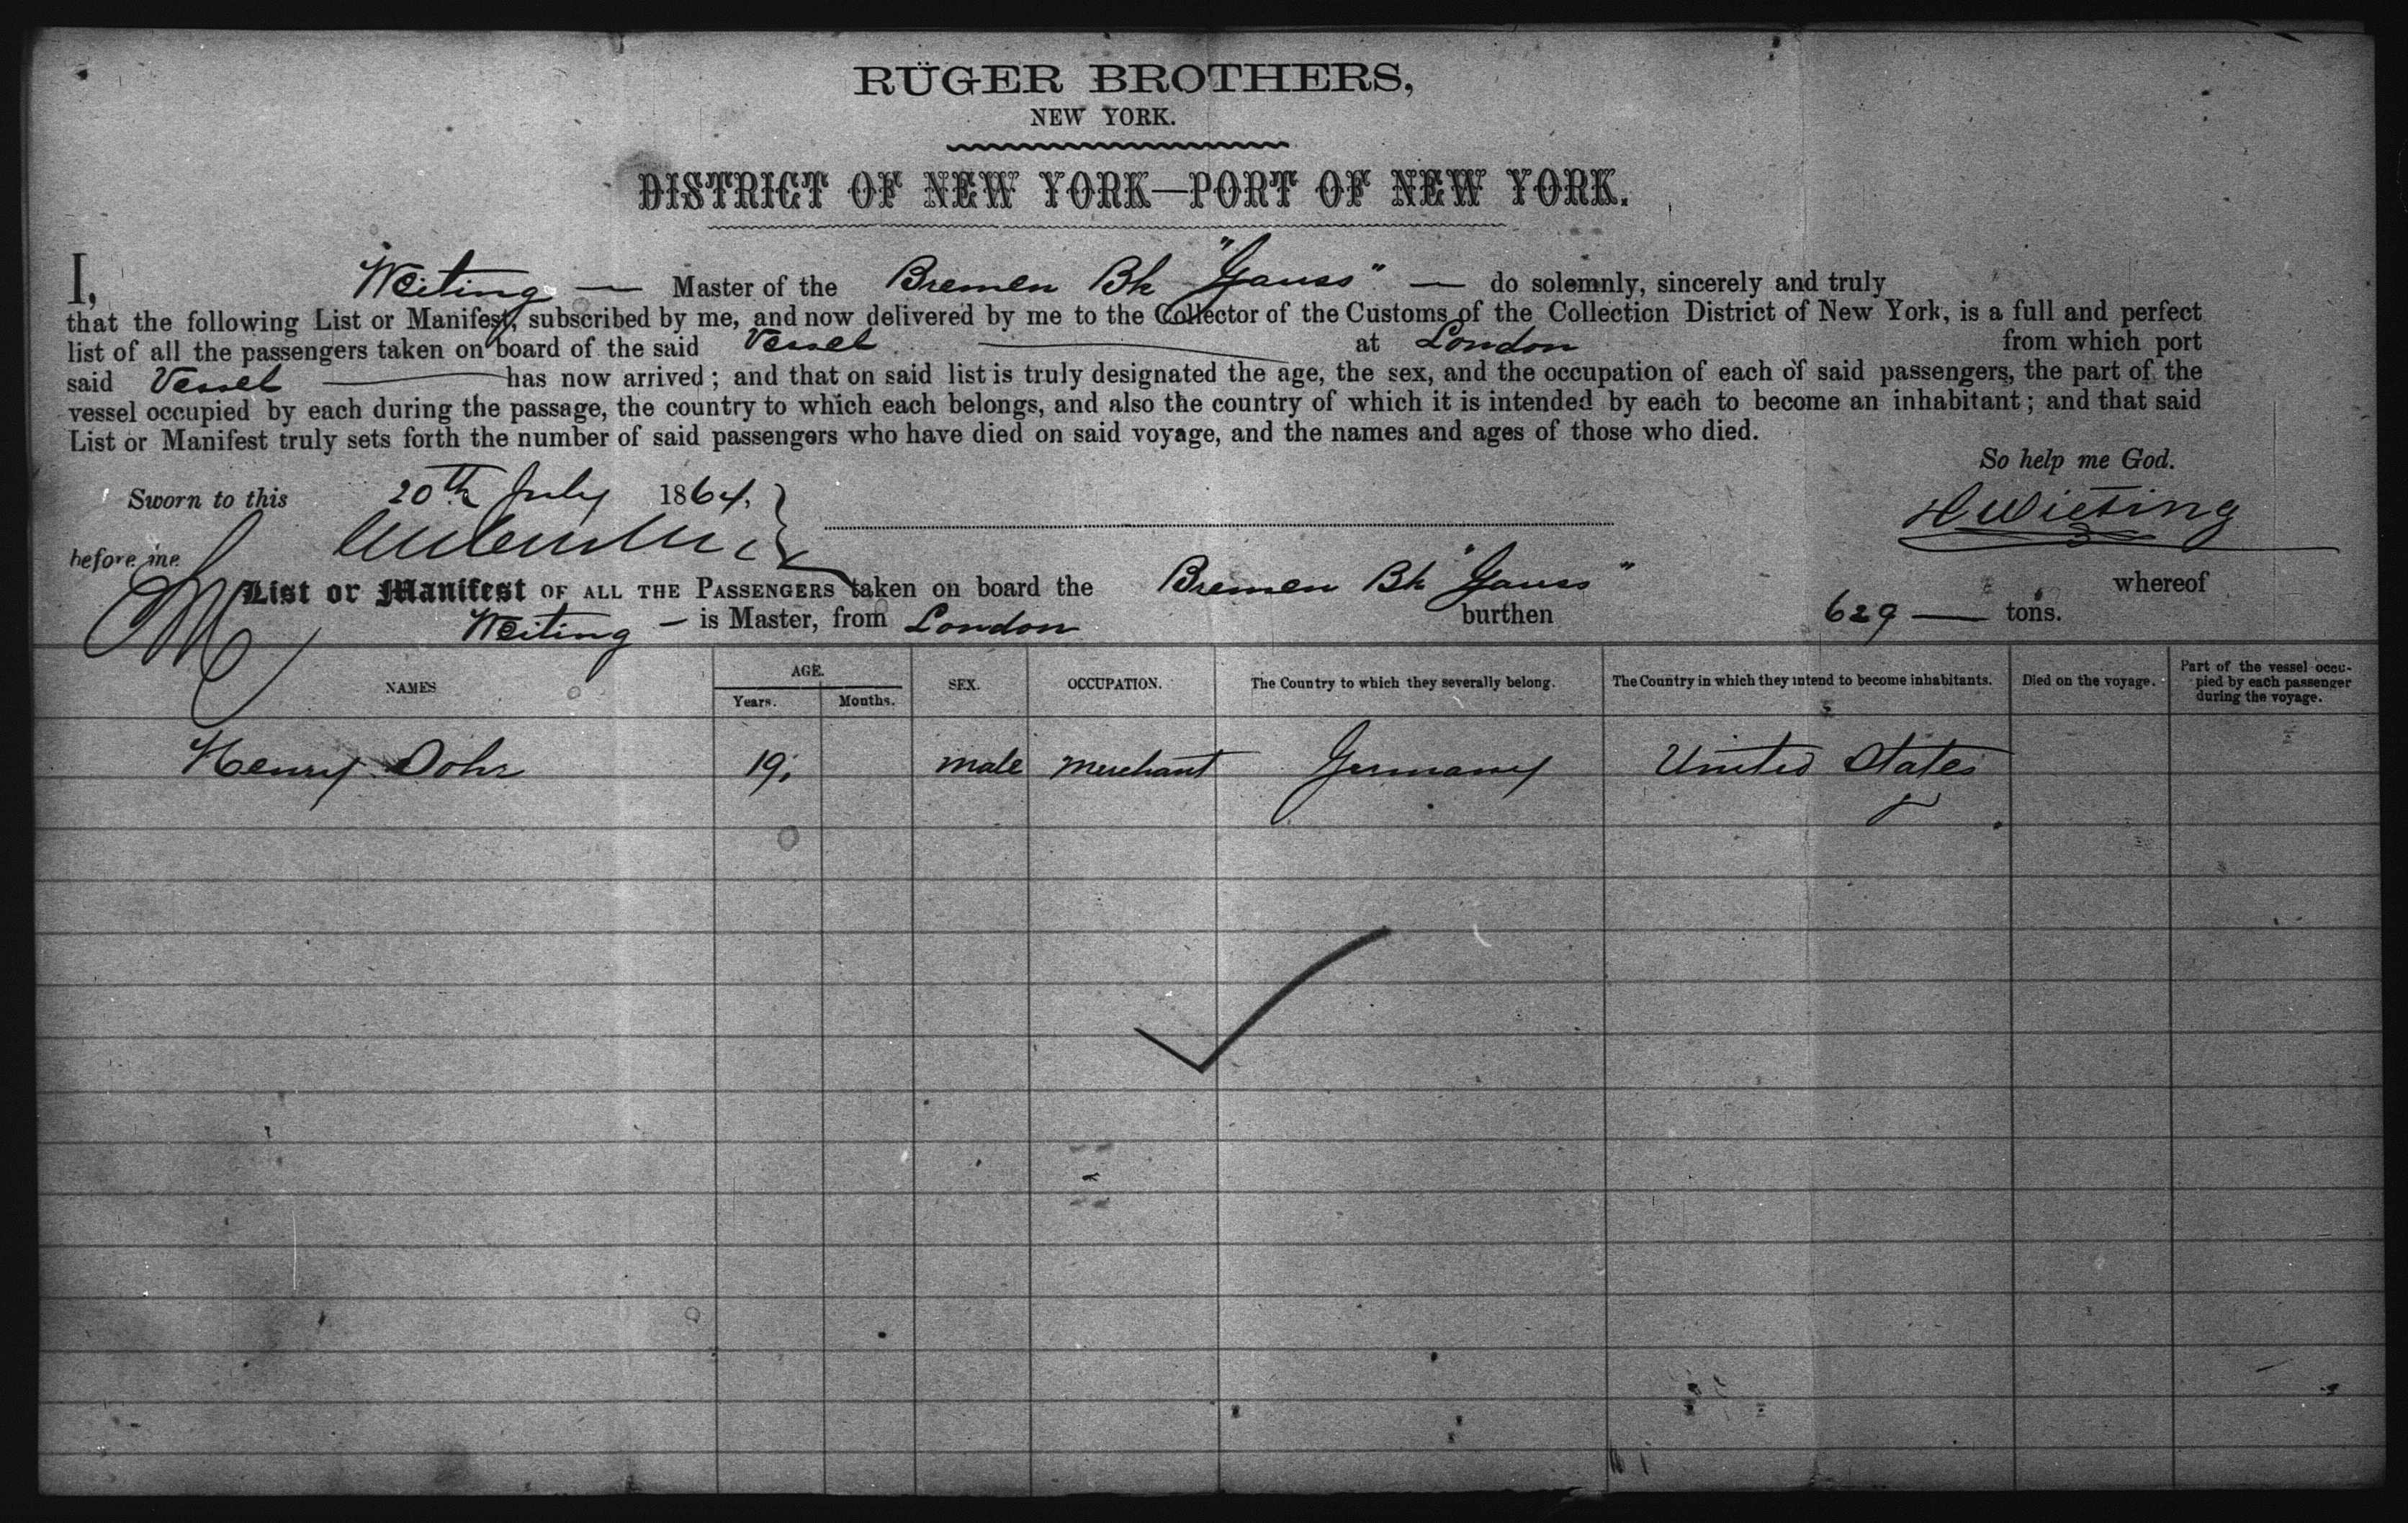 RÜGER BROTHERS,
NEW YORK.
DISTRICT OF NEW YORK—PORT OF NEW YORK.
I, Weiting — Master of the Bremen Bk "Gauss" — do solemnly, sincerely and truly
that the following List or Manifest, subscribed by me, and now delivered by me to the Collector of the Customs of the Collection District of New York, is a full and perfect
list of all the passengers taken on board of the said Vessel at London from which port
said Vessel has now arrived; and that on said list is truly designated the age, the sex, and the occupation of each of said passengers, the part of the
vessel occupied by each during the passage, the country to which each belongs, and also the country of which it is intended by each to become an inhabitant; and that said
List or Manifest truly sets forth the number of said passengers who have died on said voyage, and the names and ages of those who died.
So help me God.
Sworn to this 20th July 1864,
H Wieting
before me
List or Manifest OF ALL THE PASSENGERS taken on board the Bremen Bk "Gauss" whereof
Weiting — is Master, from London burthen 629 — tons.
NAMES AGE. SEX. OCCUPATION. The Country to which they severally belong. The Country in which they intend to become inhabitants. Died on the voyage. Part of the vessel occu-
pied by each passenger
during the voyage.
Years. Months.
Henry Dohr 19 male merchant Germany United States